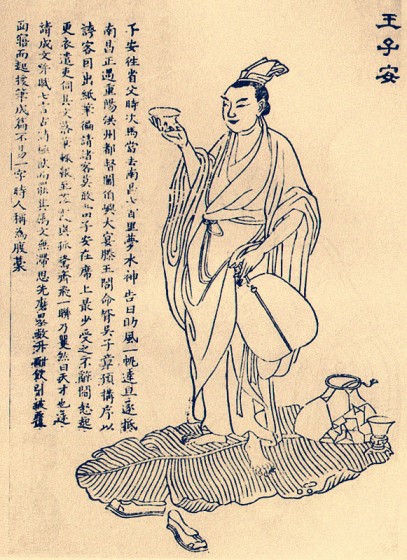 王子安
子安往省父時次馬當去南昌七百里夢水神告曰助風一帆達旦遂抵
南昌正遇重陽洪州都督閻伯嶼大宴滕王閣命婿吳子章預搆序以
誇客因出紙筆徧請諸客莫敢當子安在席上最少受之不辭閻怒起
更衣遣吏伺其文落筆輒報至落霞與孤鶩齊飛一聯乃矍然曰天才也遂
請成文并賦七言古詩極歡而罷其為文無滯思先磨墨數升酣飲引被覆
面寤而起援筆成篇不易一字時人稱為腹藁